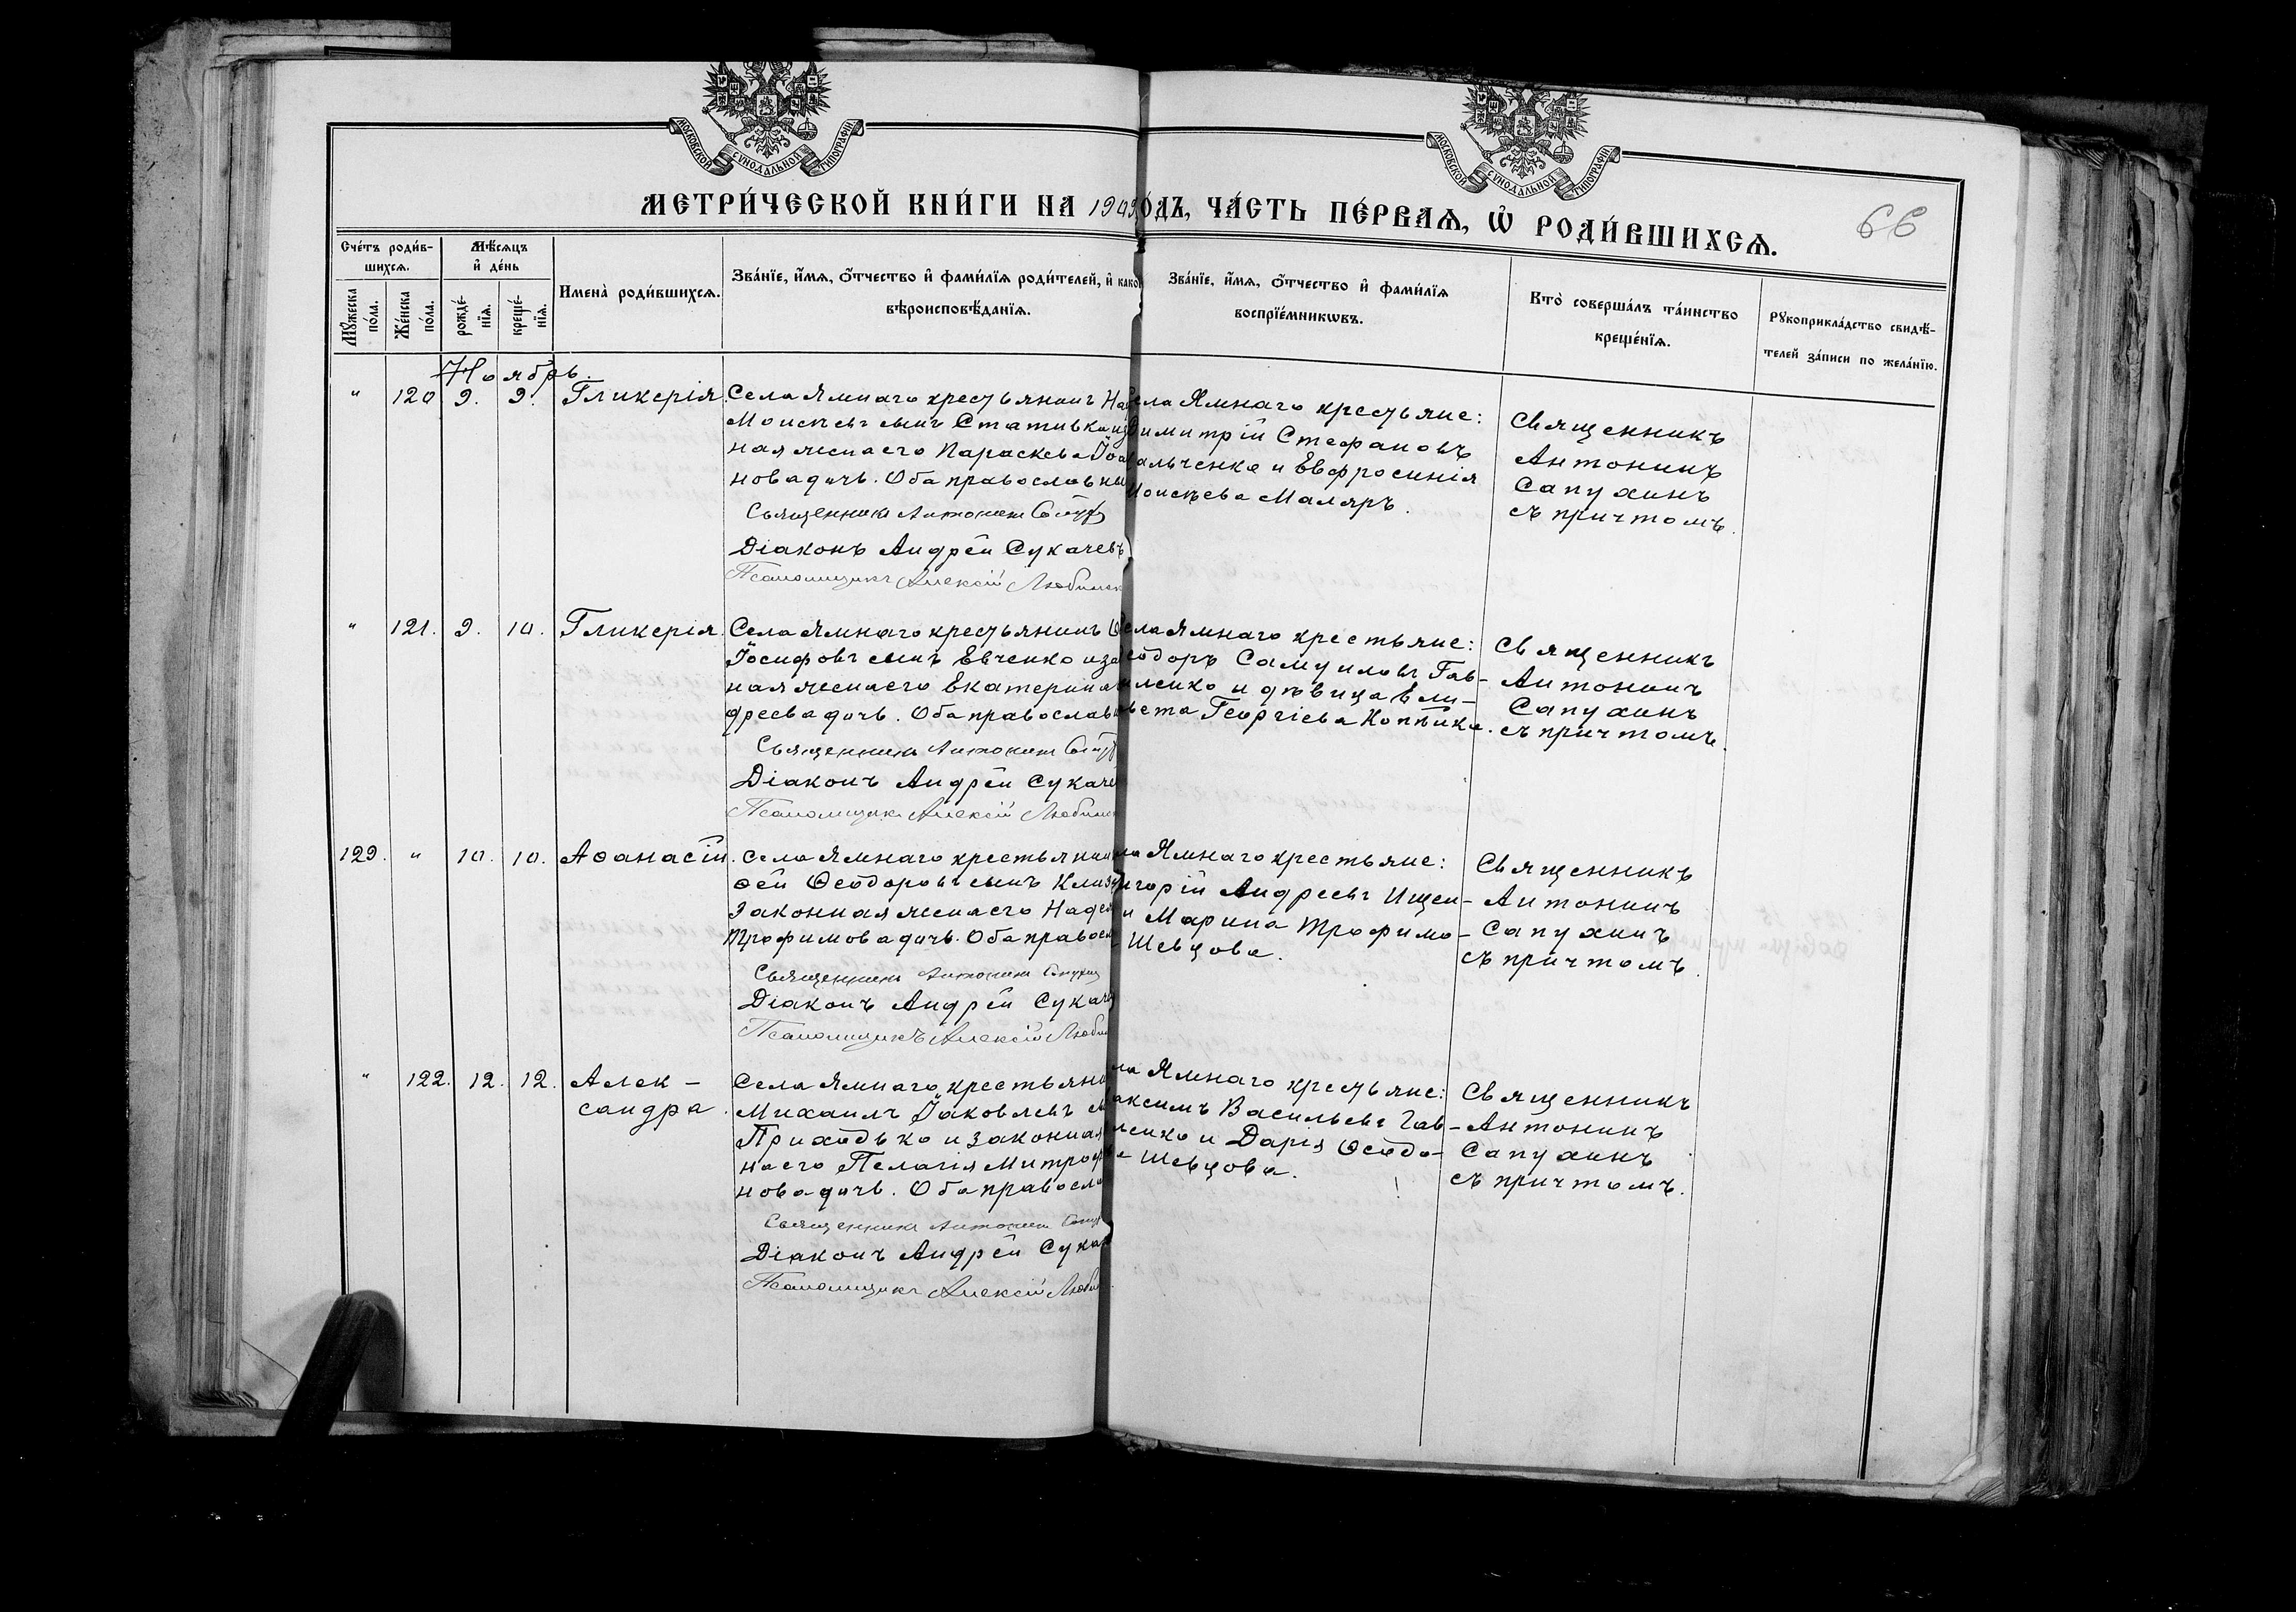 МОСКОВСКОЙ СѴНОДАЛЬНОЙ ТИПОГРАФІИ
МОСКОВСКОЙ СѴНОДАЛЬНОЙ ТИПОГРАФІИ
МЕТРИ́ЧЕСКОЙ КНИ́ГИ НА 1909 О́ДЪ, ЧА́СТЬ ПЕ́РВАѦ, Ѡ҆ РОДИ́ВШИХСѦ.
66
Сче́тъ роди́в-
шихсѧ.
Мꙋ́жеска
по́ла.
Же́нска
по́ла.
Мѣ́сѧцъ
и҆ де́нь
рожде́-
нїѧ.
креще́-
нїѧ.
Имена̀ роди́вшихсѧ.
Зва́нїе, и҆́мѧ, ѻ҆́тчество и҆ фами́лїѧ роди́телей, и҆ како
вѣроисповѣ́данїѧ.
Зва́нїе, и҆́мѧ, ѻ҆́тчество и҆ фами́лїѧ
воспрїе́мникѡвъ.
Кто̀ соверша́лъ та́инство
креще́нїѧ.
Рꙋкоприкла́дство свидѣ́-
телей за́писи по жела́нїю.
Ноябрь.
" 120 9. 9. Гликерія.
Села Ямнаго крестьянинъ
Моисеевъ сынъ Стативка из
ная жена его Параскева Іоа
нова дочь. Оба православны
Священникъ Антонинъ
Діаконъ Андрей Сукачевъ
Псаломщикъ Алексій Любимск
ела Ямнаго крестьяне:
Димитрій Стефановъ
альченко и Евфросинія
Моисѣева Маляръ.
Священникъ
Антонинъ
Сапухинъ
съ причтомъ.
" 121. 9. 10. Гликерія.
Села Ямнаго крестьянинъ
Іосифовъ сынъ Евченко и за
ная жена его Екатерина
дреева дочь. Оба православ
Священникъ Антонинъ
Діаконъ Андрей Сукаче
Псаломщикъ Алексій Любимс
ела Ямнаго крестьяне:
еодоръ Самуиловъ Гав-
иленко и дѣвица Ели-
вета Георгіева Коппика.
Священникъ
Антонинъ
Сапухинъ
съ причтомъ.
129. " 10. 10. Аѳанасій.
Села Ямнаго крестьянин
ѳей Ѳеодоровъ сынъ
законная жена его Наде
Трофимова дочь. Оба правосл
Священникъ Антонинъ Сапухин
Діаконъ Андрей Сукаче
Псаломщикъ Алексій Любим
ла Ямнаго крестьяне:
игорій Андреевъ Ищен-
и Марина Трофимо-
Шевцова.
Священникъ
Антонинъ
Сапухинъ
съ причтомъ.
" 122. 12. 12. Алек-
сандра.
Села Ямнаго крестьяни
Михаилъ Іаковлевъ
Приходько и законная
на его Пелагія Митроф
нова дочь. Оба правосла
Священникъ Антонинъ Сапух
Діаконъ Андрей Сукач
Псаломщикъ Алексій Люби
ла Ямнаго крестьяне:
аксимъ Васильевъ Гав-
ленко и Дарія Ѳеодо-
Шевцова.
Священникъ
Антонинъ
Сапухинъ
съ причтомъ.